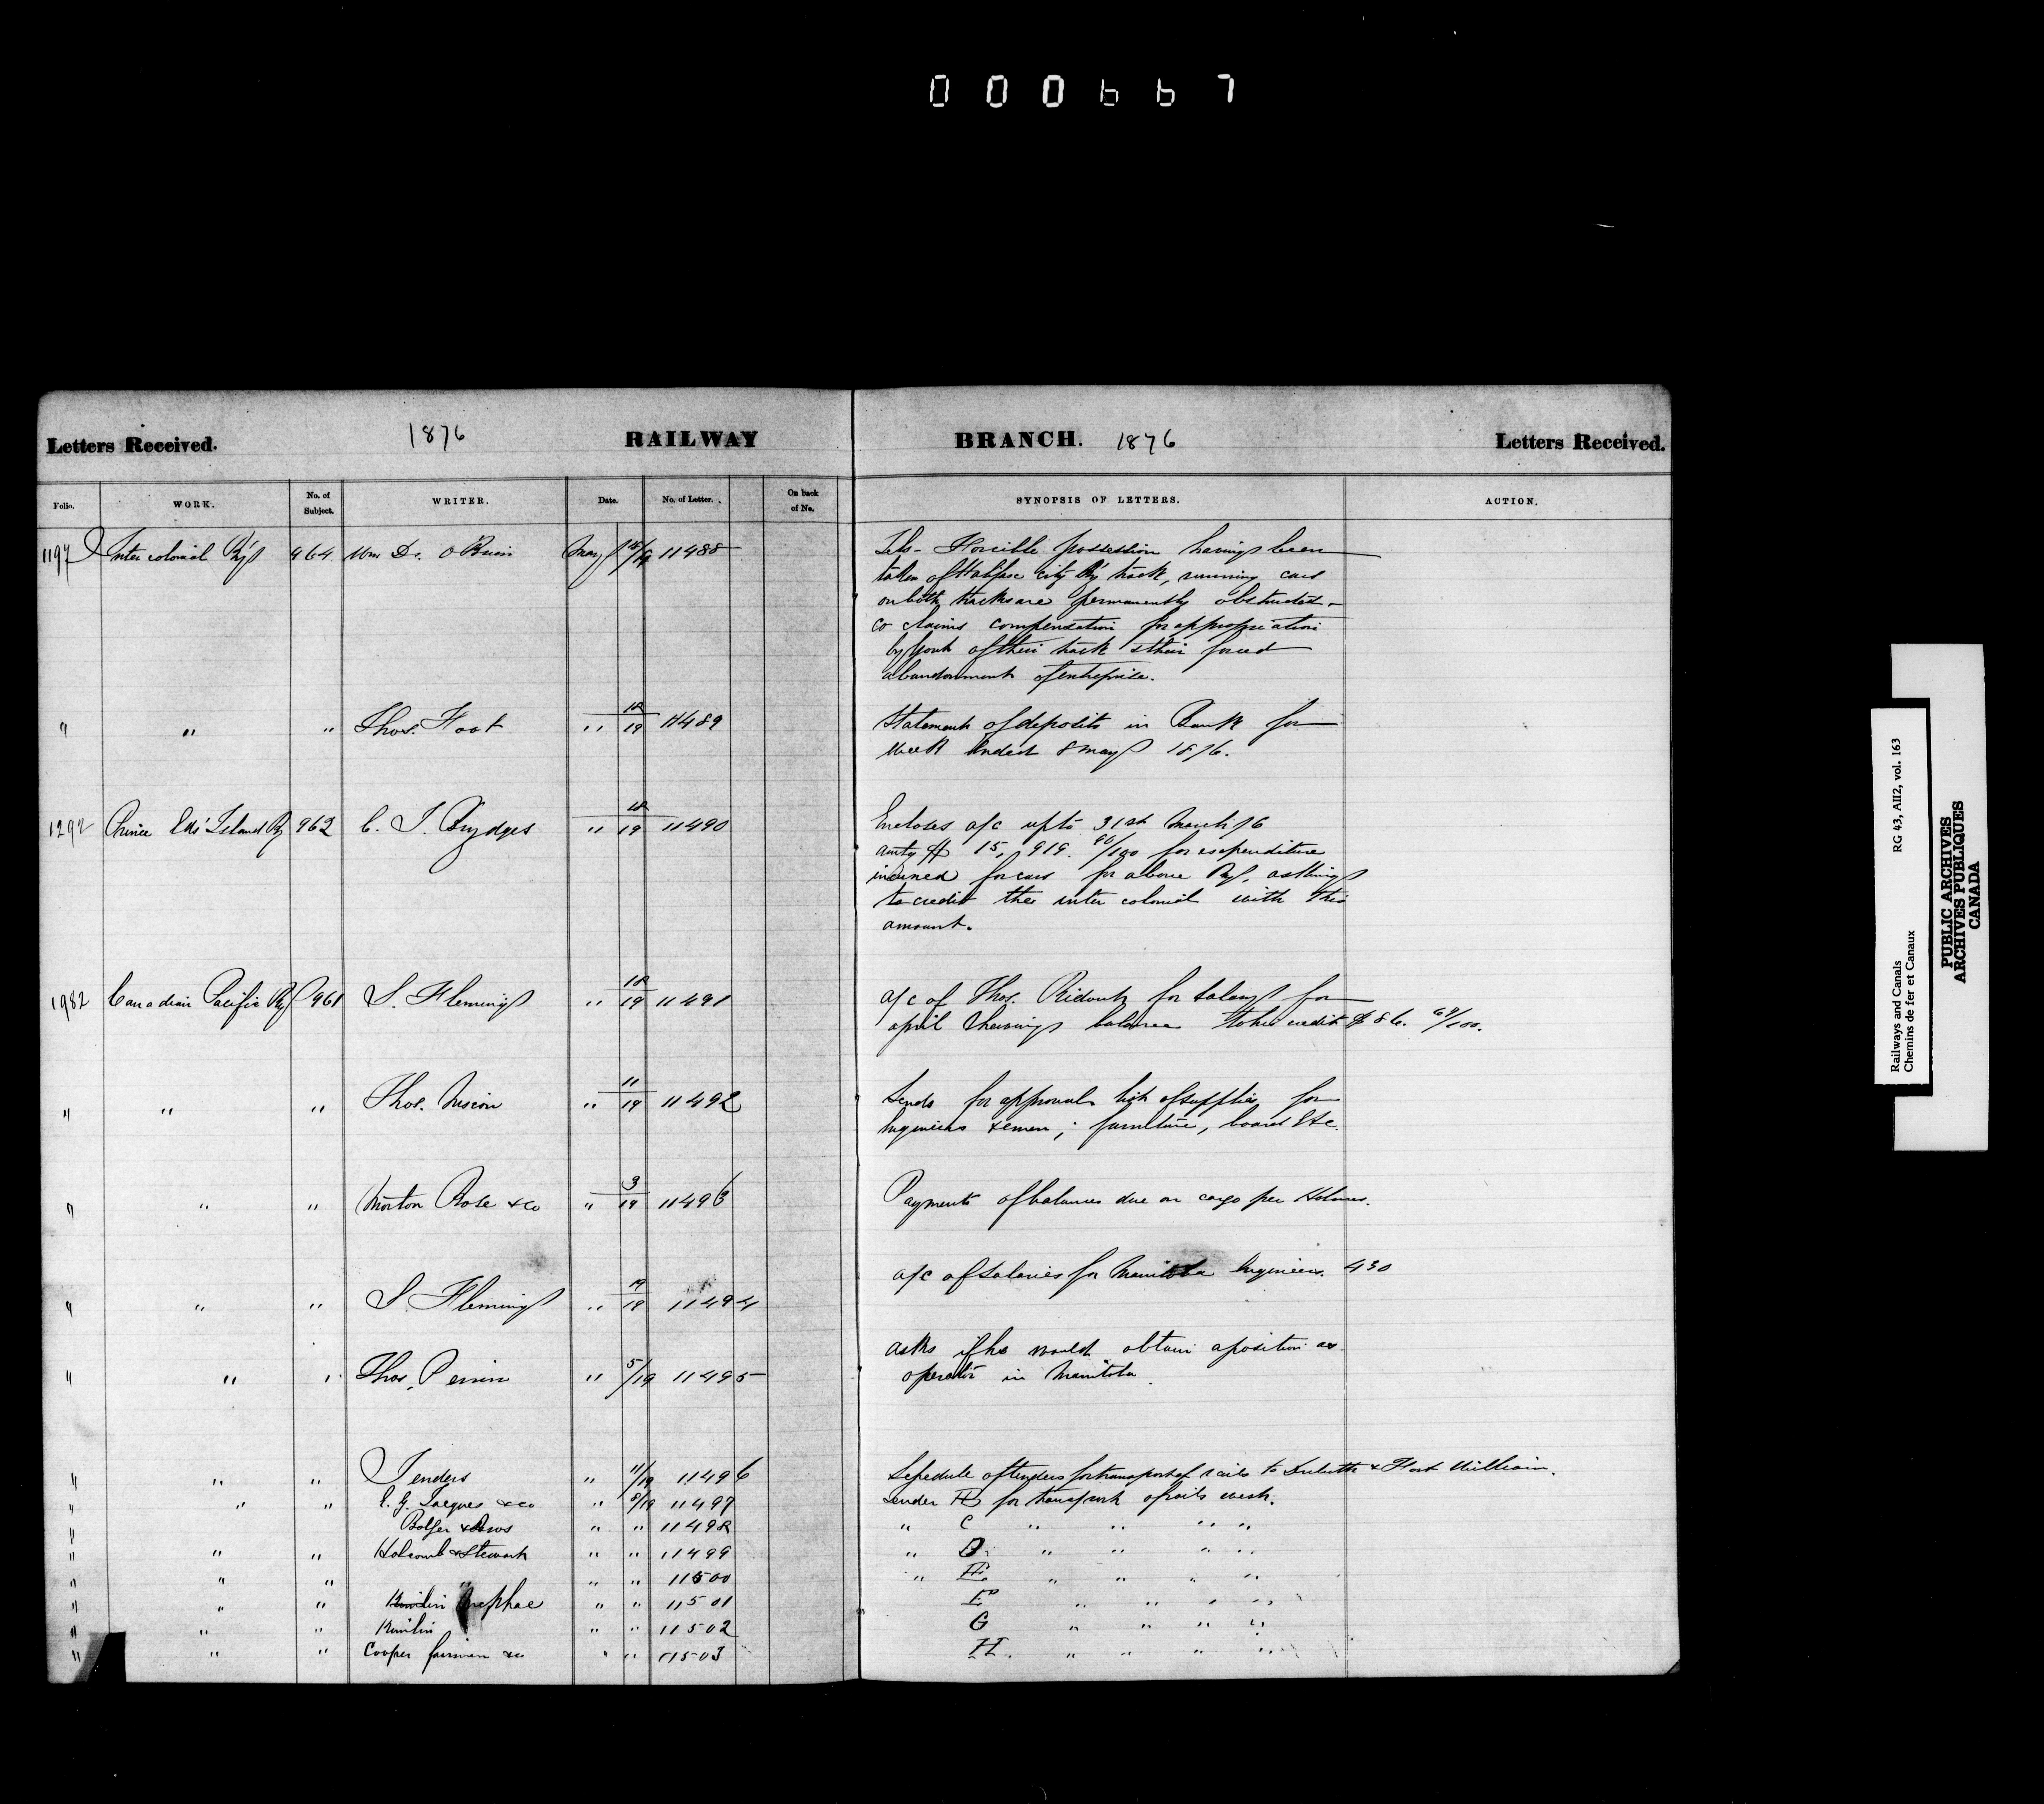 000667
Letters Received. 1876 RAILWAY BRANCH. 1876 Letters Received.
Folio. WORK. No. of Subject. WRITER. Date. No. of Letter. On back of No. SYNOPSIS OF LETTERS. ACTION.
1197 Inter colonial Ry 964 Wm D. O Brien May 18/19 11488 Tels - Forcible possession having been
taken of Halifax city Ry track, running cars
on both tracks are permanently obstructed -
co claims compensation for appropriation
by Govt of their track & their forced
abandonment of enterprise.
" " " Thos. Foot " 18/19 11489 Statement of deposits in Bank for
week ended 8 May 1876.
1292 Prince Edd Island Ry 962 C. J. Brydges " 18/19 11490 Encloses a/c up to 31st March 76
amtg $ 15,919. 90/100 for expenditure
incurred for cars for above Ry.
to credit the inter colonial with this
amount.
1982 Canadian Pacific Ry 961 S. Fleming " 18/19 11491 a/c of Thos. Ridout for Salary for
april shewing balance to his credit $ 86. 69/100.
" " " Thos. Nixon " 11/19 11492 Sends for approval list of supplies for
Engineers & men; furniture, board &c.
" " " Morton Rose & Co " 3/19 11493 Payments of balances due on cargo per Holmes.
" " " S. Fleming " 19/19 11494 a/c of Salaries for Manitoba Engineers. 430
" " " Thos. Perrin " 5/19 11495 asks if he would obtain a position as
operator in Manitoba.
" " " Tenders " 11/19 11496 Schedule of tenders for transport of rails to Duluth & Fort William.
" " " E. G. Jacques & co " 8/19 11497 Tender B for transport of rails west.
" Bolger & Bros " " 11498 " C " " " "
" " " Holcomb & Stewart " " 11499 " D. " " " "
" " " " " " 11500 " E. " " " "
" " " McPhae " " 11501 F " " " "
" " " " " 11502 G " " " "
" " " Cooper fairman & co " " 11503 H. " " " "
Railways and Canals RG 43, AII2, vol. 163
Chemins de fer et Canaux
PUBLIC ARCHIVES
ARCHIVES PUBLIQUES
CANADA